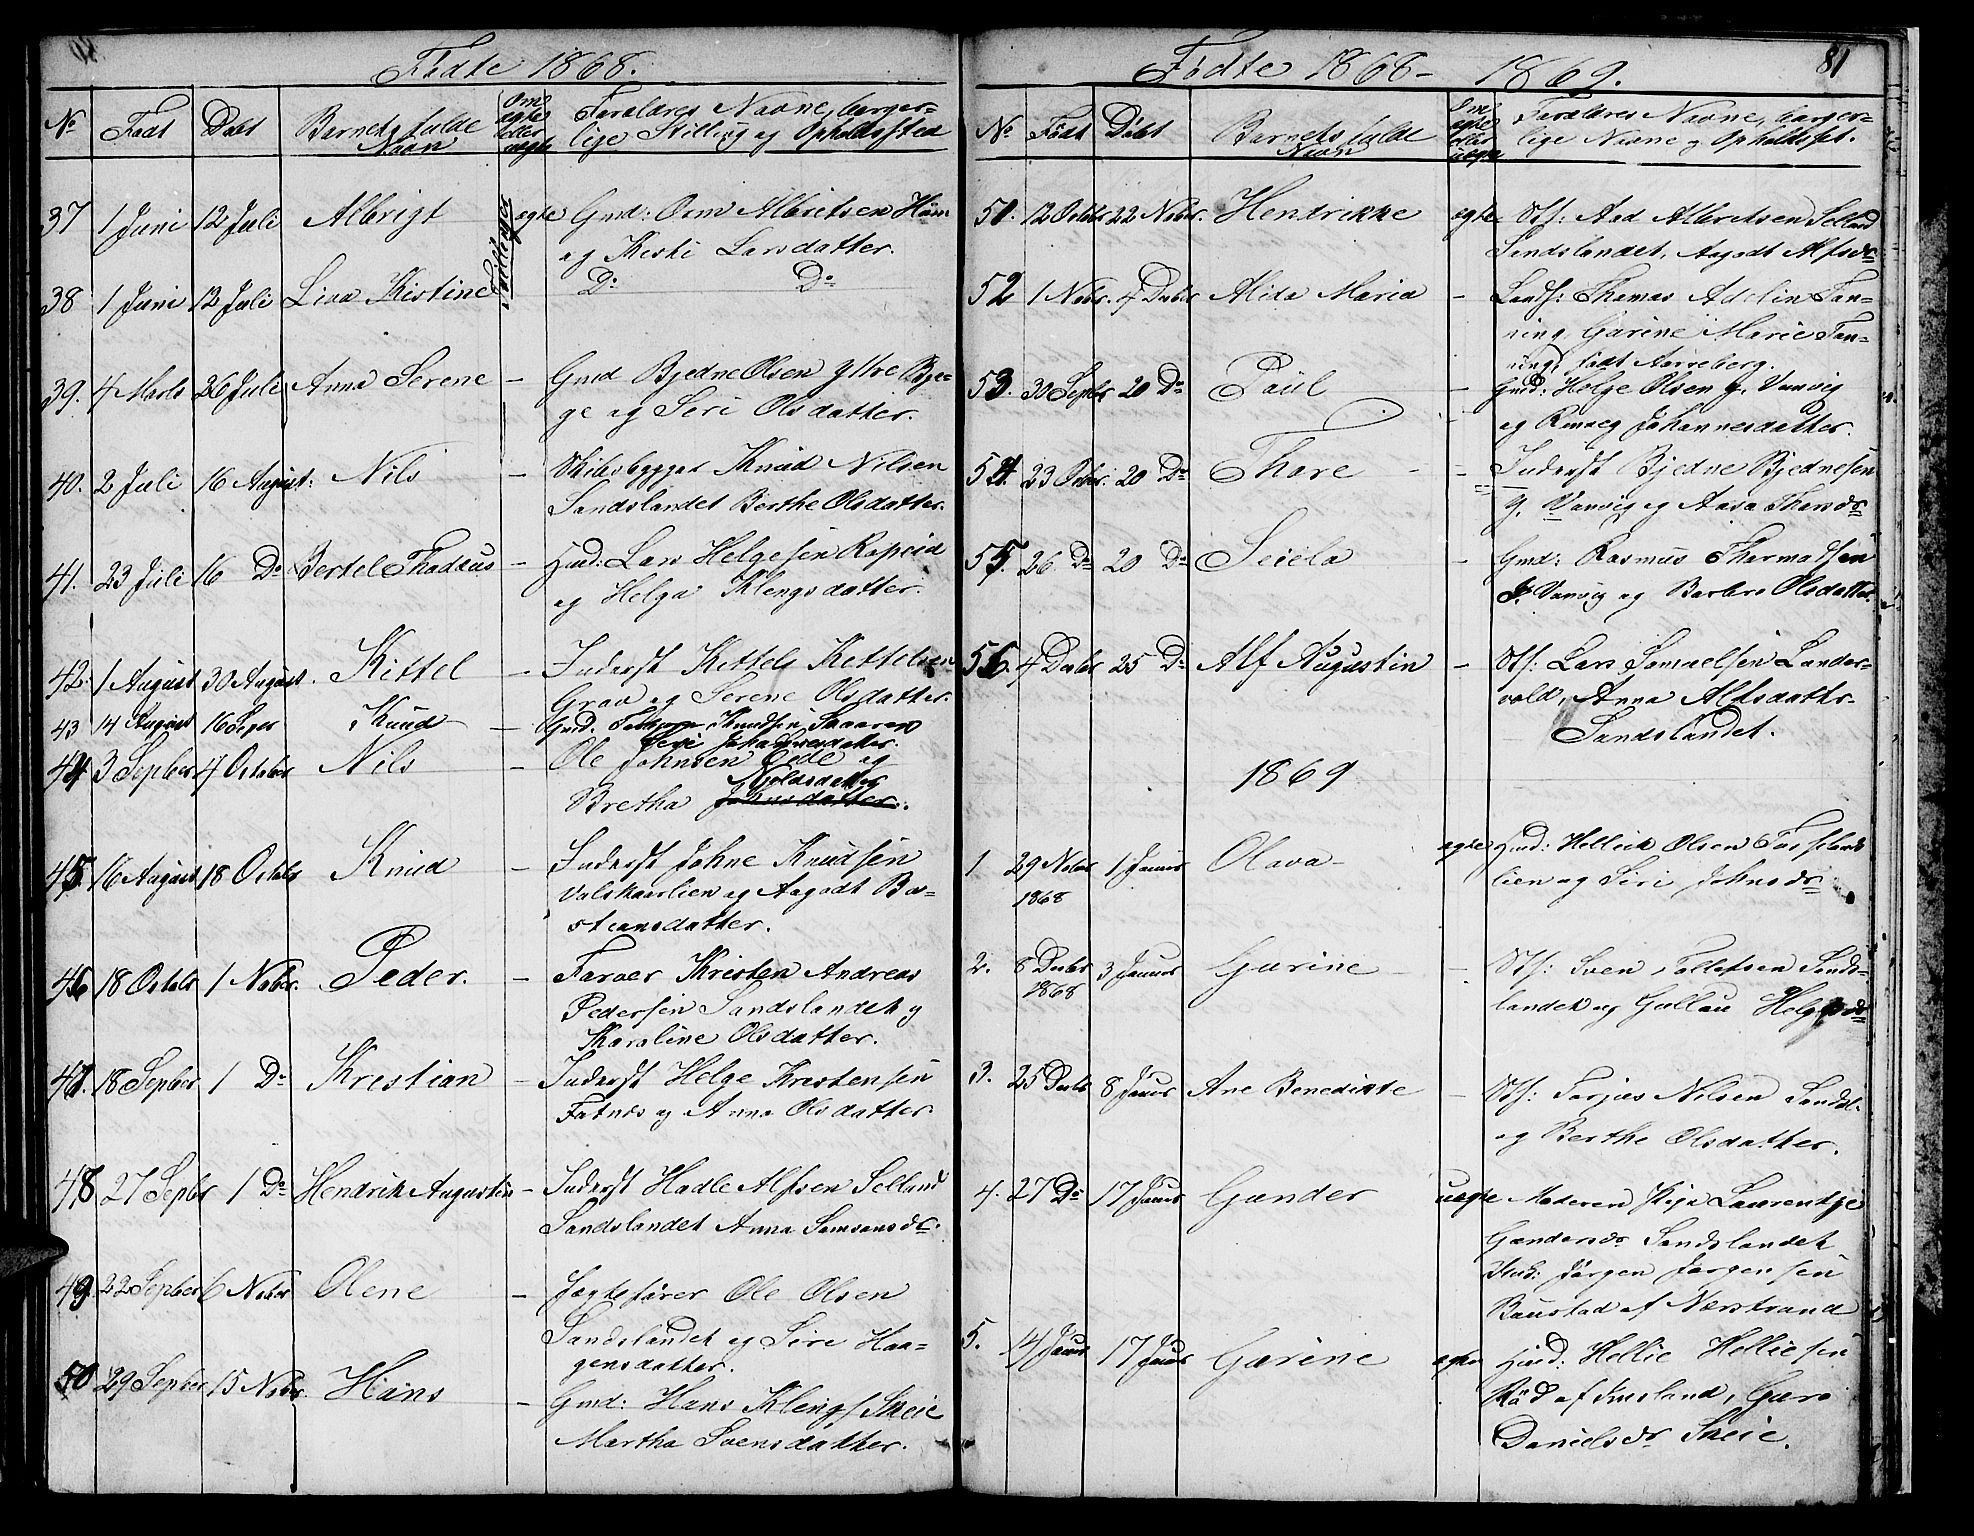 Fødte 1868.
No Født Døbt Barnets fulde Navn Om ægte eller uægte Forældres Navne, borger-
lige Stilling og Opholdssted
37 1 Juni 12 Juli Albrigt ægte Gmd: Orm Albretsen
Tvillinger
og Kirsti Larsdatter.
38 1 Juni 12 Juli Lisa Kistine Do Do
39. 4 Marts 26 Juli Anna Serene - Gmd Bjedne Olsen Yttre Byg-
ge og Seri Olsdatter.
40. 2 Juli 16 August: Nils - Skibsbygger Knud Nilsen
Sandslandet Berthe Olsdatter.
41. 23 Juli 16 Do Bertel Thadeus - Hud: Lars Helgesen
og Helga Klengsdatter.
42. 1 August 30 August. Kittel - Inderst Kettels Kettelsen
Grav og Serene Olsdatter.
43 14 August 16 Sepr Knud - Gmd. Knudsen
Seri Johannesdatter.
44 3 Sepber 4 October Nils - Ole Johnsen Eide og
Njeldsdatter
Bretha Johnsdatter.
45. 16 August 18 Octobr Knud - Inderst Johne Knudsen
Valskaarlien og Aagodt Ba-
steansdatter.
46 18 Octobr 1 Nober. Peder. - Farver Kristen Andreas
Pedersen Sandslandet og
Karoline Olsdatter.
47. 18 Sepber 1 Do Kristian - Inderst Helge Kristensen
Fatnes og Anna Olsdatter.
48 27 Sepbr 1 Do Hendrik Augustin - Inderst Hadle Alfsen Selland
Sandslandet Anna Samsonsdr.
49. 22 Sepber 6 Nober Olene - Jagtefører Ole Olsen
Sandslandet og Sire Haa-
gensdatter.
50 29 Sepber 15 Nober. Hans - Gmd: Hans Klengs. Skeie
Martha Svensdatter.
Fødte 1868 - 1869. 81
No Født Døbt Barnets fulde Navn Om ægte eller uægte Forældres Navne, borger-
lige Navne og Opholdsst.
51. 12 Octbr 22 Nobr. Hendrikke ægte Stf: Aad Albretsen Selland
Sandslandet, Aagodt Alfsdr
52 1 Nobr. 4 Decbr Alida Maria - Landh: Thomas Adolin Fan-
ning, Garine Marie Fan-
ning, født Aarreberg.
53. 30 Sepbr 20 Do Paul - Gmd: Helge Olsen y. Vanvig
og Johannesdatter.
54. 23 Octbr. 20 Do Thore - Inderst Bjedne Bjednesen
y. Vanvig og Aasa Thorsdr
55. 26 Do 20 Do Seiela - Gmd: Rasmus Thormodsen
I. Vanvig og Barbro Olsdatter.
56. 4 Decbr 25 Do Alf Augustin - Stf: Lars Samuelsen Lander-
vold, Anna Alfsdatter
Sandslandet.
1869
1 29 Nober 1868 1 Januar Olava - ægte Hud: Hellick Olsen
lien og Siri Johnsdr
2. 8 Decbr 1868 3 Januar Garine - Stf: Sven Tollefsen Sands-
landet og Gullau Helgesdr
3. 25 Decbr 8 Januar Ane Benedikte - Stf: Torjus Nilsen Sandsl.
og Berthe Olsdatter.
4. 27 Do 17 Januar Gunder uægte Moderen Pige Laurentze
Gundersdr Sandslandet
Und: Jørgen Jørgensen
Baustad af Nærstrand
5. 14 Januar 17 Januar Garine ægte Hud: Hellic Helliesen
Rød af Imsland, Guro
Danielsdr Skeie.